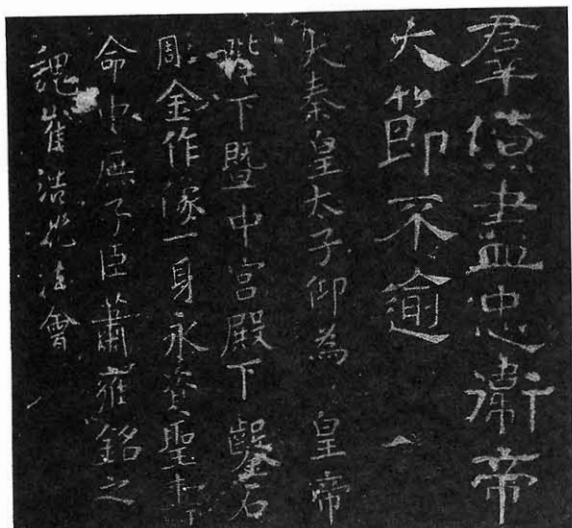 羣僚盡忠衛帝
大節不逾
大秦皇太子仰為 皇帝
陛下暨中宮殿下鑿石
彫金作像一身永資聖壽
命中庶子臣蕭雍銘之
魏崔浩 法會